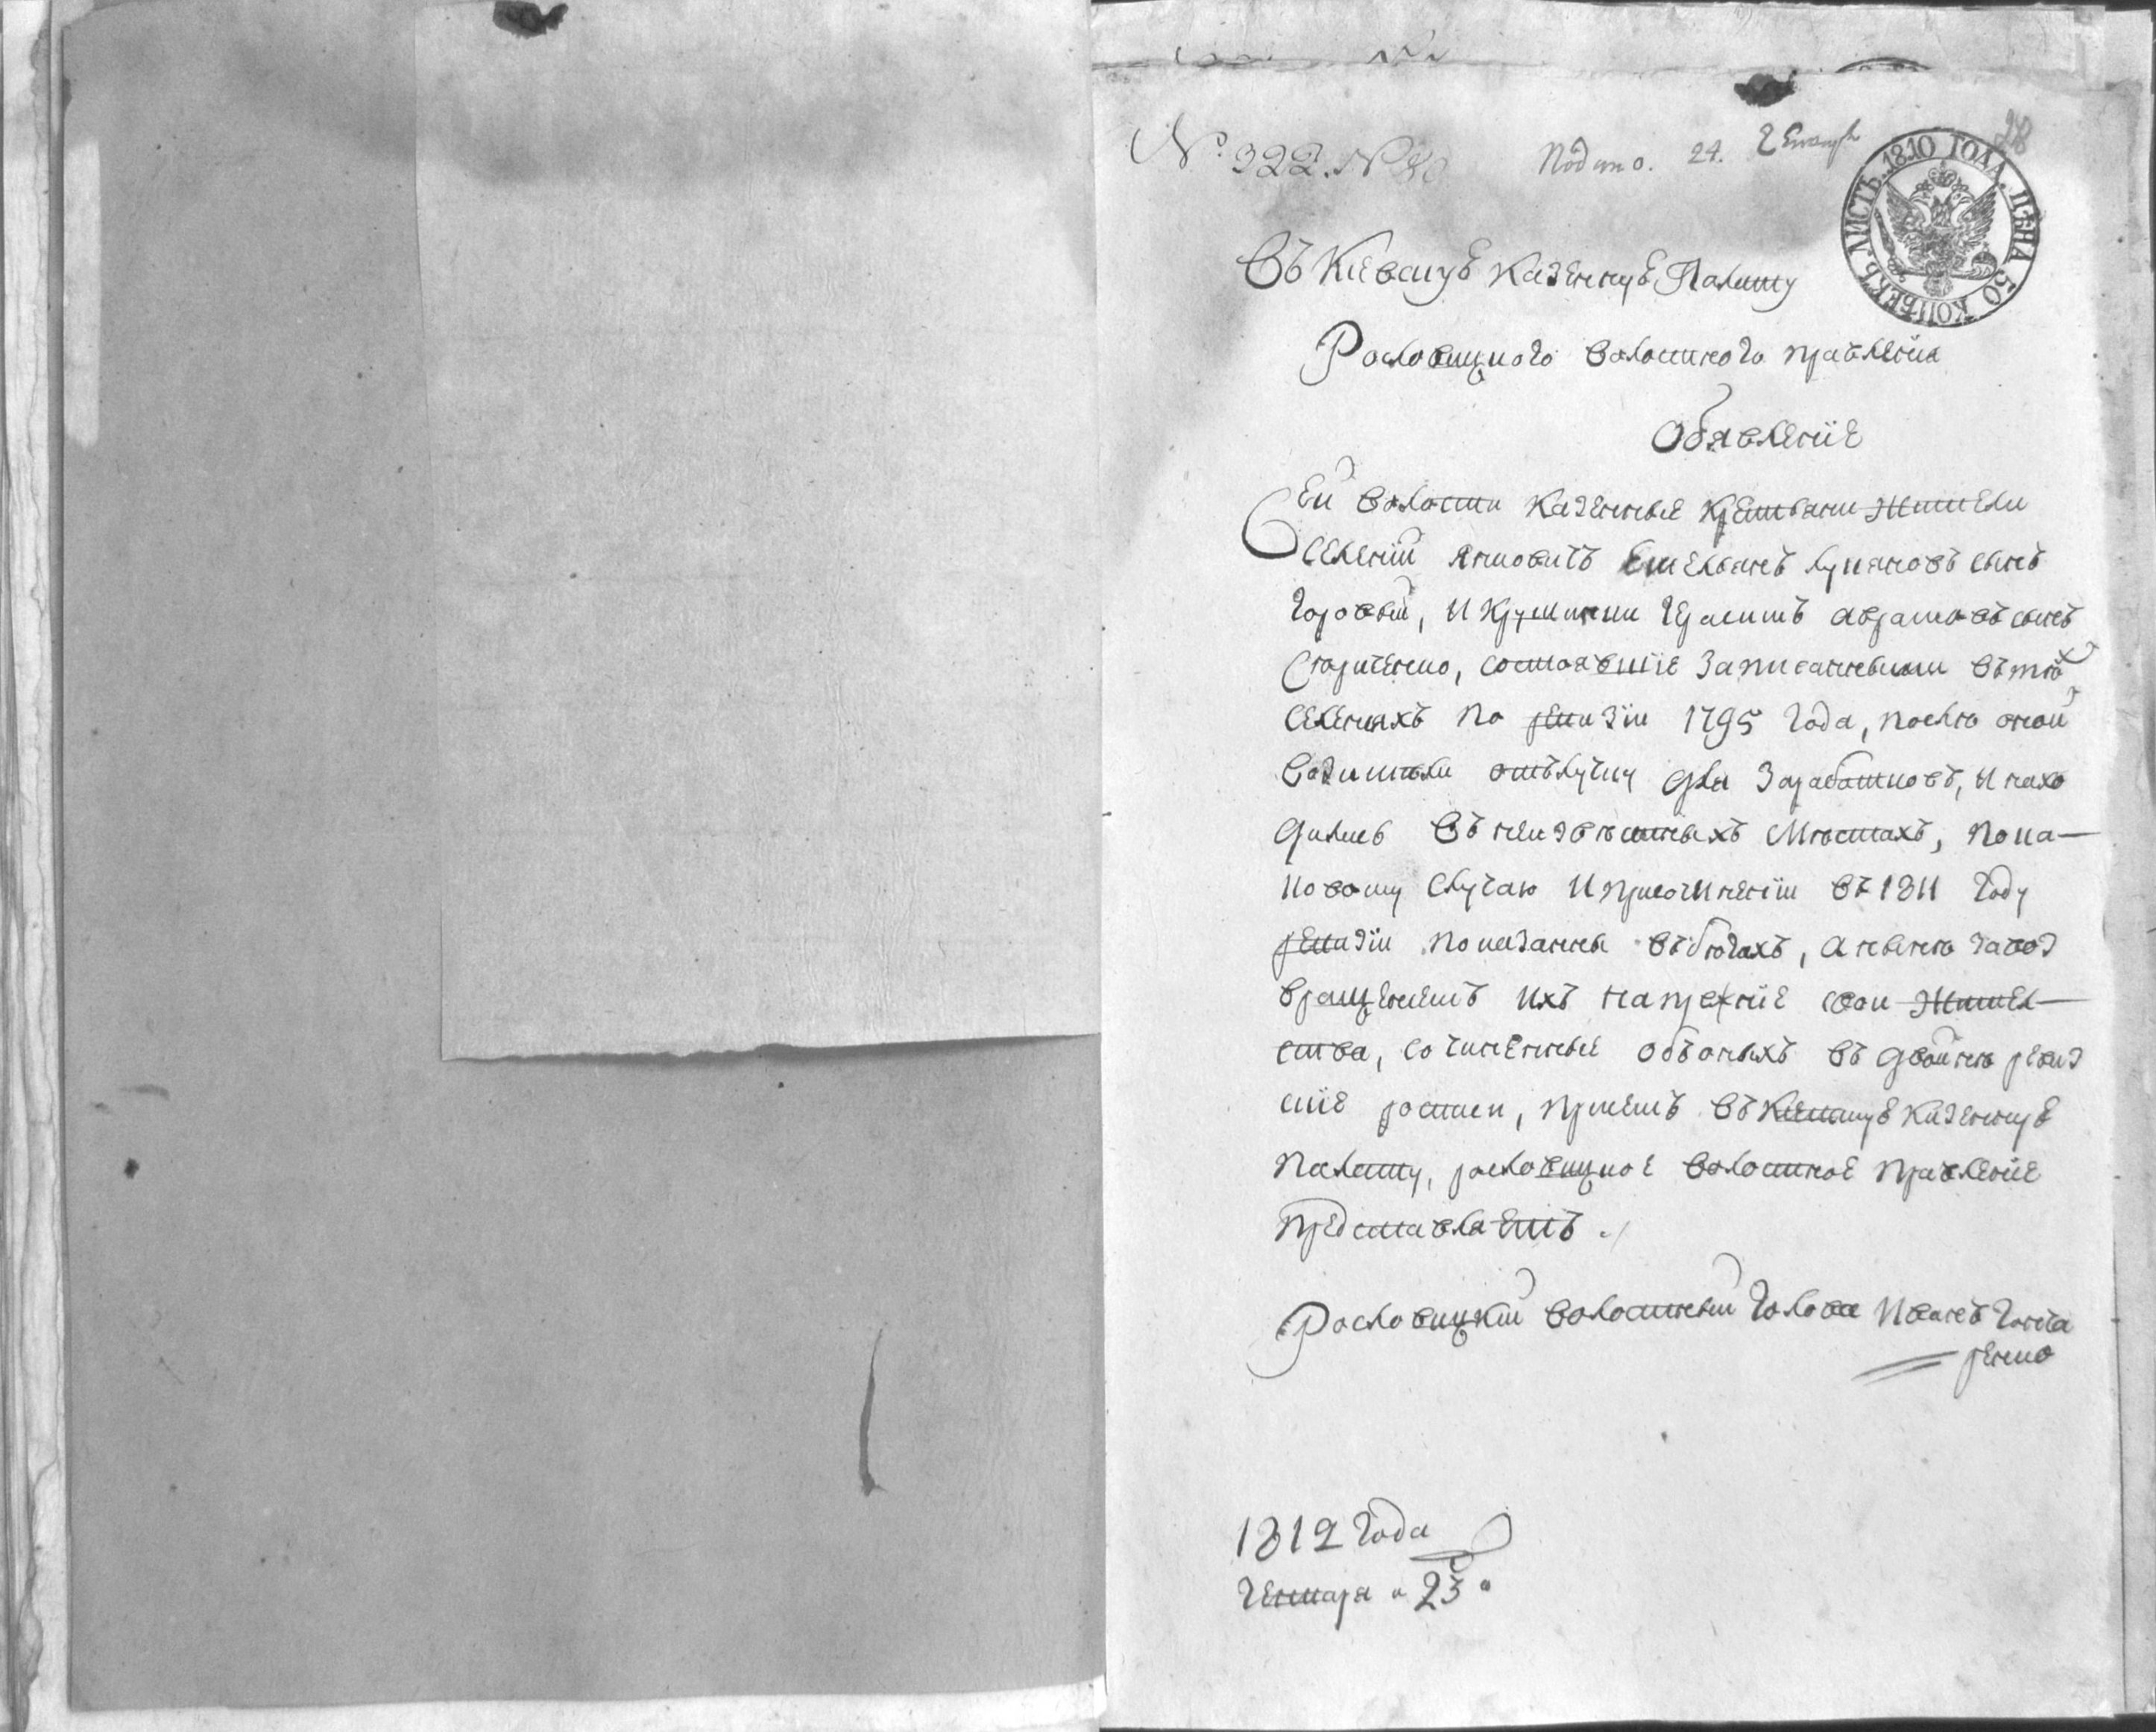 № 322. №
Подано. 24. Генваря
28
ЛИСТЪ. 1810 ГОДА. ЦѢНА 50 КОПѢЕКЪ.
Въ Киевскую Казенную Палату
Рословицкого волостного правленія
Обявленіе
Сей волости казенные крестьяни жители
селеній Яновичъ Емельянъ Лукяновъ сынъ
Горовый, и Крушинки Герасимъ Аврамовъ сынъ
Скориченко, состоявшіе записанными въ тѣх
селенияхъ по ревизіи 1795 года, после оной
возимѣли отълучку для заработковъ, и нахо
дились въ неизвѣстныхъ мѣстахъ, покa-
ковому случаю и приочиненіи въ 1811 году
ревизіи показанны въ бѣгахъ, а нынѣ за воз
вращениемъ ихъ напрежніе свои жител-
ства, сочиненные обоныхъ въ двойнѣ ревиз
скіе росписи, приемъ въ Киевскую казенную
Палату, рословицкое волостное правленіе
представляетъ.
Рословицкій волостный голова Иванъ Гонча
ренко
1812 года
Генваря 23